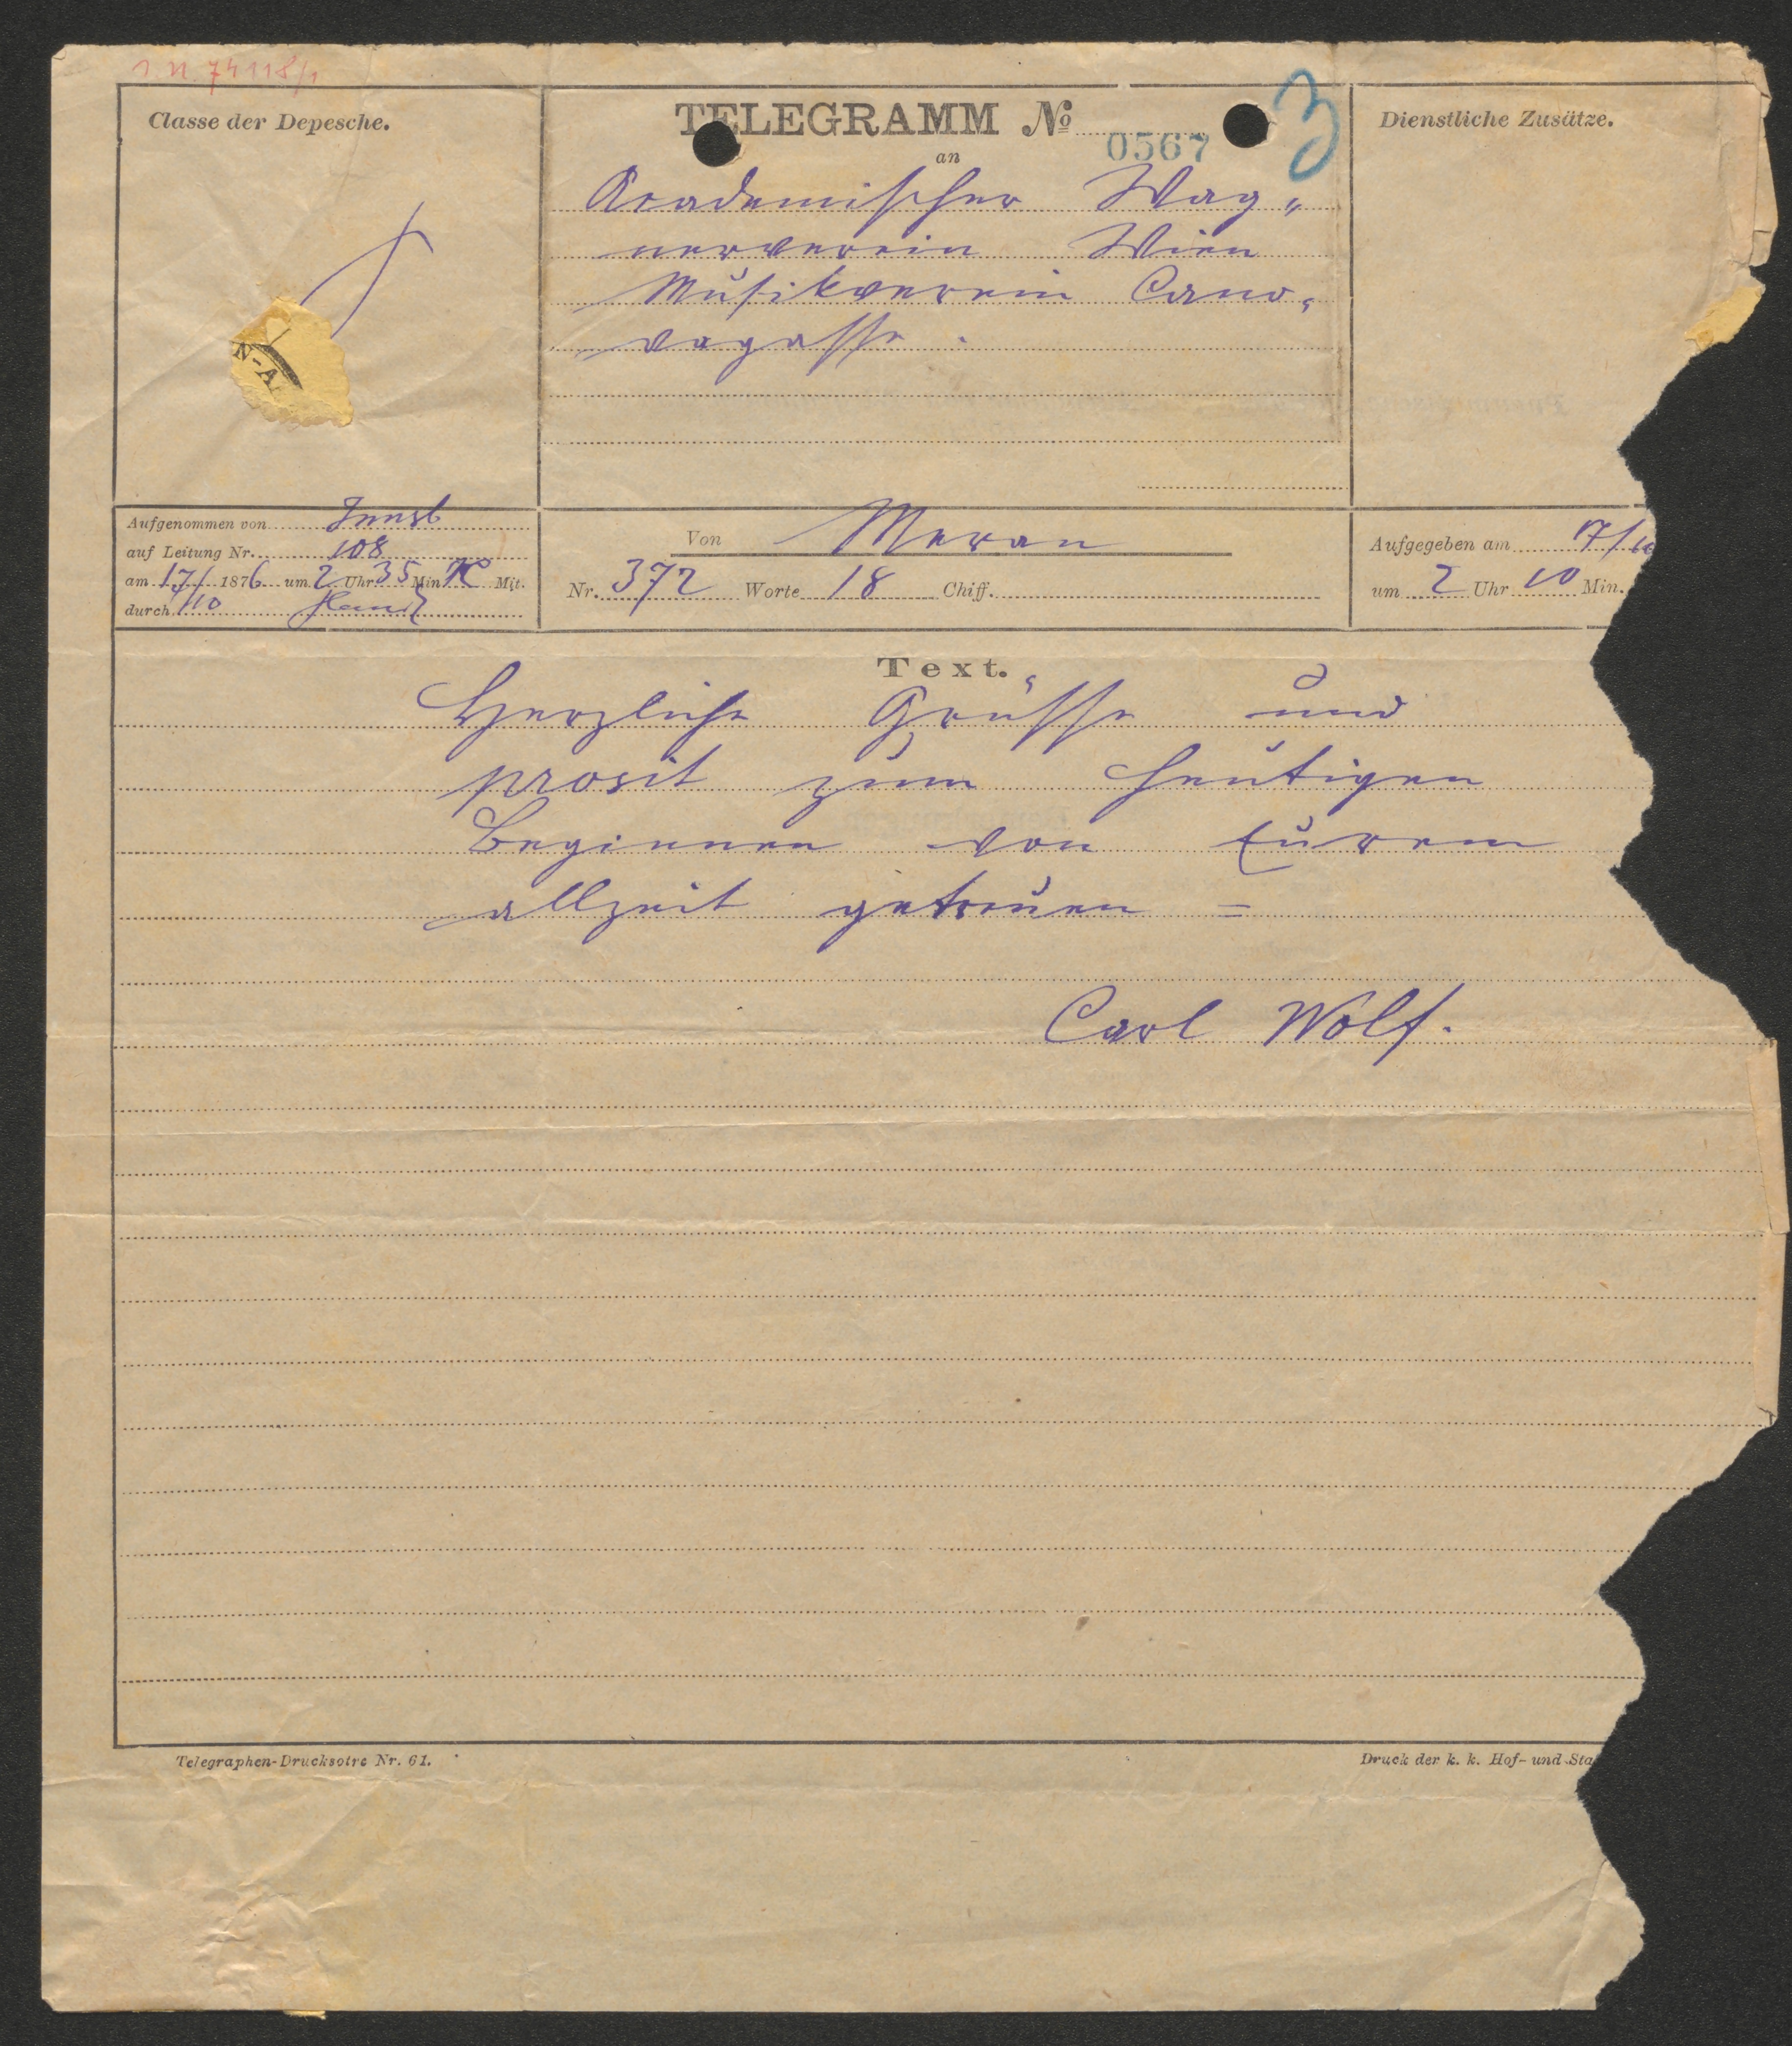 I. N. 74118/1
Classe der Depesche.
TELEGRAMM No 0567
3
Dienstliche Zusätze.
an
Academischer Wag„
nerverein Wien
Musikverein Cano„
vagasse.
N-A
Aufgenommen von Innsb
auf Leitung Nr. 108
am 17/10 1876 um 2 Uhr 35 Min Mit.
durch
Von Meran
Nr. 372 Worte 18 Chiff.
Aufgegeben am 17/10
um 2 Uhr 10 Min.
Text.
Herzliche Grüsse und
prosit zum heutigen
Beginnen von Eurem
allzeit getreuen =
Carl Wolf.
Telegraphen-Drucksotre Nr. 61.
Druck der k. k. Hof- und Sta